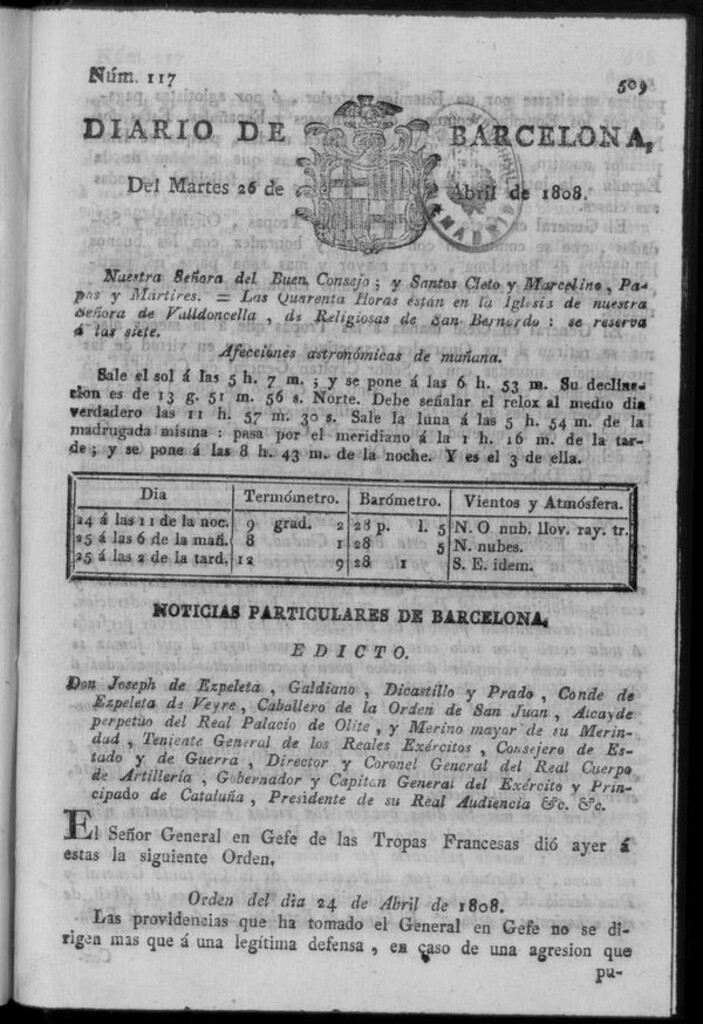 Núm. 117
509
DIARIO DE BARCELONA,
Del Martes 26 de Abril de 1808.
MADRID
Nuestra Señora del Buen Consejo ; y Santos Cleto y Marcelino, Pa-
pas y Mártires. = Las Quarenta Horas están en la Iglesia de nuestra
Señora de Valldoncella , de Religiosas de San Bernardo : se reserva
á las siete.
Afecciones astronómicas de mañana.
Sale el sol á las 5 h. 7 m. ; y se pone á las 6 h. 53 m. Su declina-
cion es de 13 g. 51 m. 56 s. Norte. Debe señalar el relox al medio dia
verdadero las 11 h. 57 m. 30 s. Sale la luna á las 5 h. 54 m. de la
madrugada misma : pasa por el meridiano á la 1 h. 16 m. de la tar-
de ; y se pone á las 8 h. 43 m. de la noche. Y es el 3 de ella.
Dia Termómetro. Barómetro. Vientos y Atmósfera.
24 á las 11 de la noc. 9 grad. 2 28 p. l. 5 N. O nub. llov. ray. tr.
25 á las 6 de la mañ. 8 1 28 5 N. nubes.
25 á las 2 de la tard. 12 9 28 1 S. E. idem.
NOTICIAS PARTICULARES DE BARCELONA.
EDICTO.
Don Joseph de Ezpeleta , Galdiano , Dicastillo y Prado , Conde de
Ezpeleta de Veyre, Caballero de la Orden de San Juan , Alcayde
perpetuo del Real Palacio de Olite , y Merino mayor de su Merin-
dad , Teniente General de los Reales Exércitos , Consejero de Es-
tado y de Guerra , Director y Coronel General del Real Cuerpo
de Artillería , Gobernador y Capitan General del Exército y Prin-
cipado de Cataluña , Presidente de su Real Audiencia &c. &c.
El Señor General en Gefe de las Tropas Francesas dió ayer á
estas la siguiente Orden.
Orden del dia 24 de Abril de 1808.
Las providencias que ha tomado el General en Gefe no se di-
rigen mas que á una legítima defensa , en caso de una agresion que
pu-